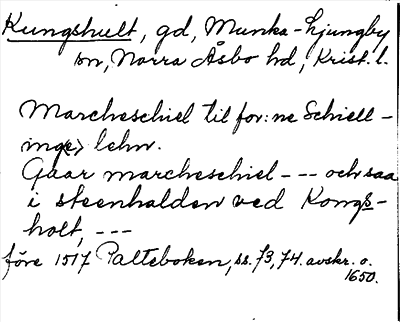 Kungshult, gd, Munka-Ljungby
sn, Norra Åsbo hd, Krist. l.
Marcheschiel til for:ne Schiell-
inge, lehn.
Gaar marcheschiel --- och saa
i steenhalden ved Kongs-
holt, ---
före 1517 Palteboken, ss. 73, 74. avskr. o.
1650.